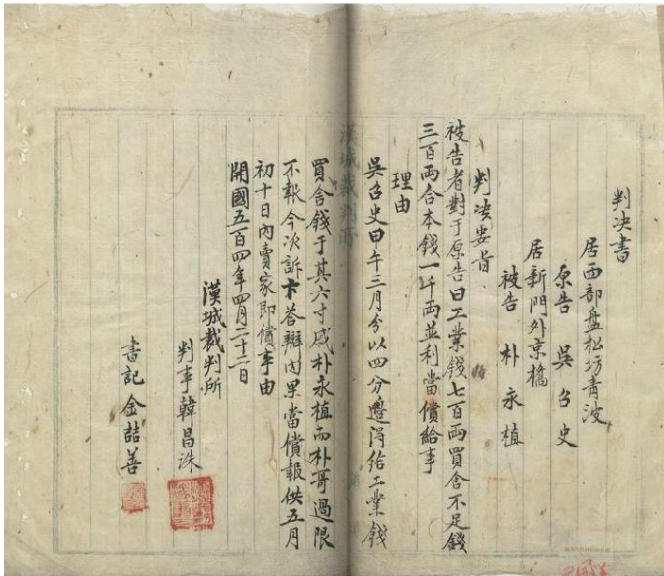 判决書
居西部盤松坊青波
原告 吳召史
居新門外京橋
被告 朴永植
判决要旨
被告者對于原告曰工業錢七百兩買舍不足錢
三百兩合本錢一千兩並利當償給事
理由
吳召史曰午三月分以四分邊得給工業錢
買舍錢于其六寸戚朴永植而朴哥過限
不報今次訴卞答辯內果當償報供五月
初十日內賣家即償事由
開國五百四年四月二十二日
漢城裁判所
判事韓昌洙
書記金喆善
漢城裁判所